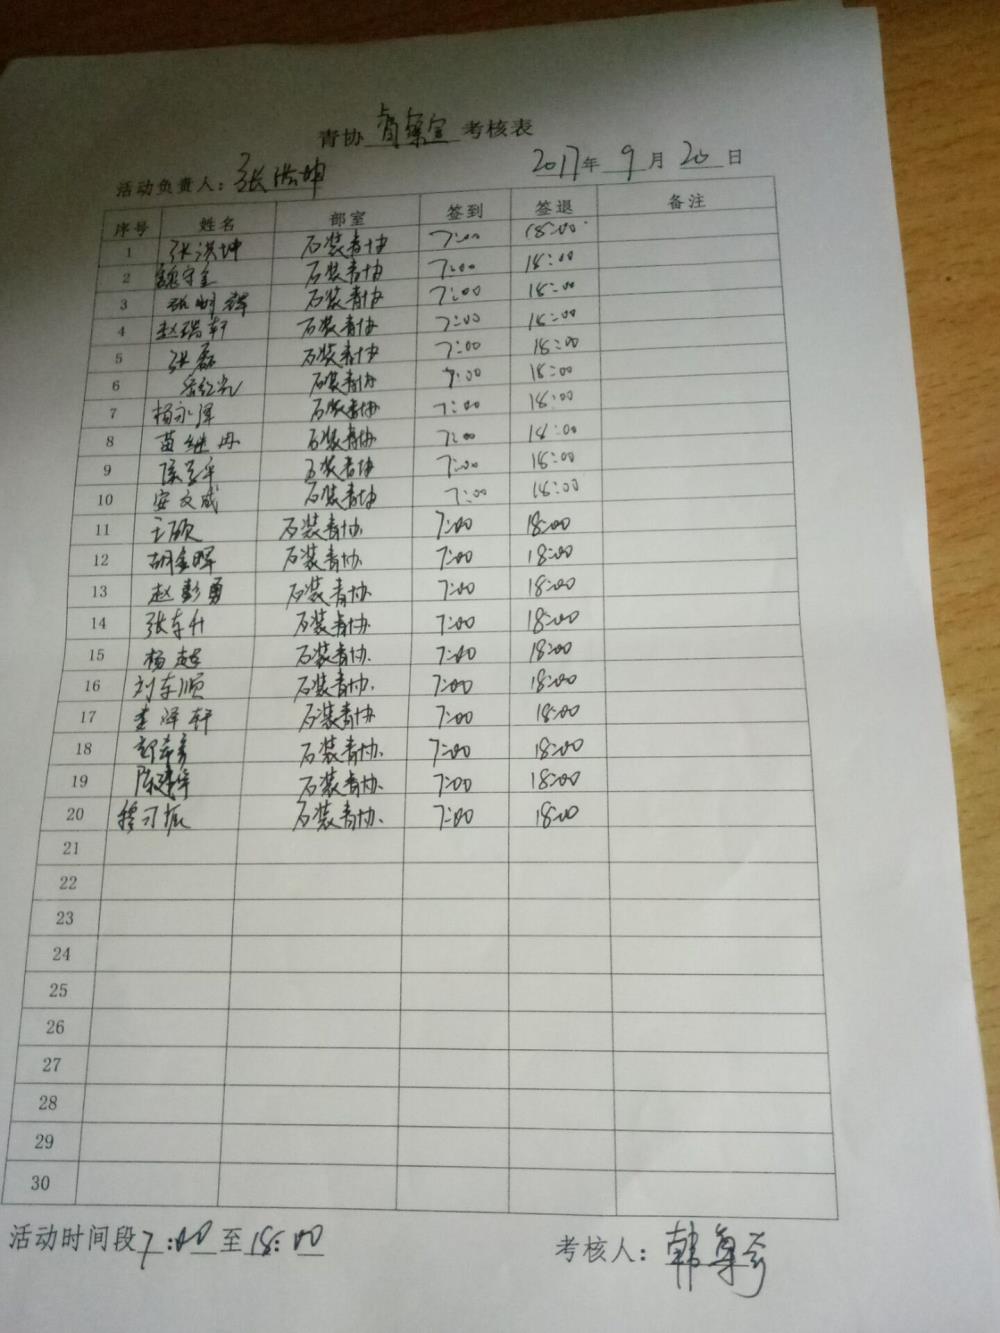 青协 考核表
活动负责人：张洪坤 2017年 9 月 20 日
序号 姓名 部室 签到 签退 备注
1 张洪坤 石装青协 7:00 18:00
2 魏守金 石装青协 7:00 18:00
3 石装青协 7:00 18:00
4 赵瑞轩 石装青协 7:00 18:00
5 张磊 石装青协 7:00 18:00
6 石装青协 7:00 18:00
7 杨永泽 石装青协 7:00 18:00
8 苗继丹 石装青协 7:00 18:00
9 石装青协 7:00 18:00
10 安文成 石装青协 7:00 18:00
11 王硕 石装青协. 7:00 18:00
12 胡金晖 石装青协. 7:00 18:00
13 赵彭勇 石装青协. 7:00 18:00
14 张东升 石装青协. 7:00 18:00
15 杨超 石装青协. 7:00 18:00
16 刘东顺 石装青协. 7:00 18:00
17 李泽轩 石装青协 7:00 18:00
18 石装青协. 7:00 18:00
19 石装青协. 7:00 18:00
20 石装青协. 7:00 18:00
21
22
23
24
25
26
27
28
29
30
活动时间段7:00至18:00 考核人：韩